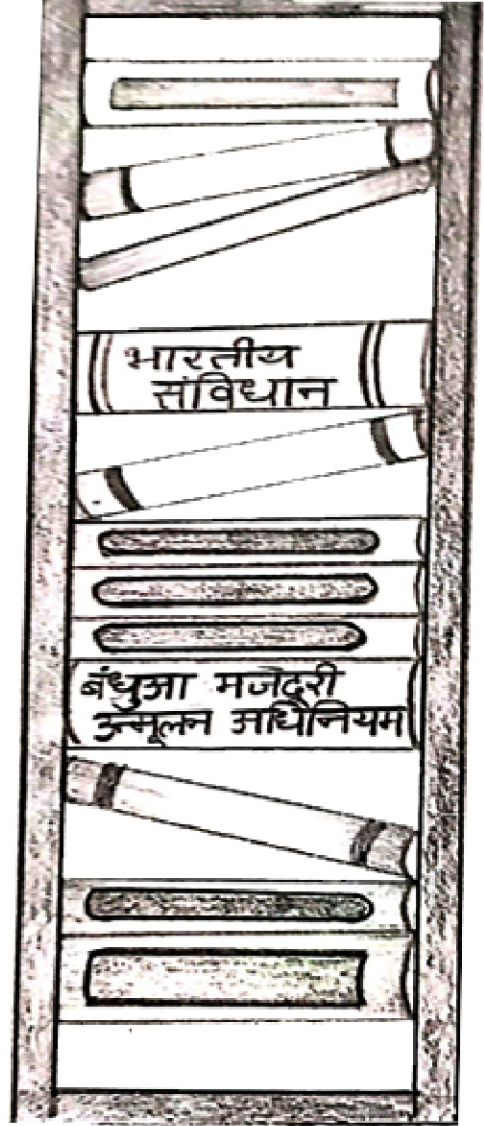 भारतीय
संविधान
बंधुआ मजदूरी
उन्मूलन अधिनियम